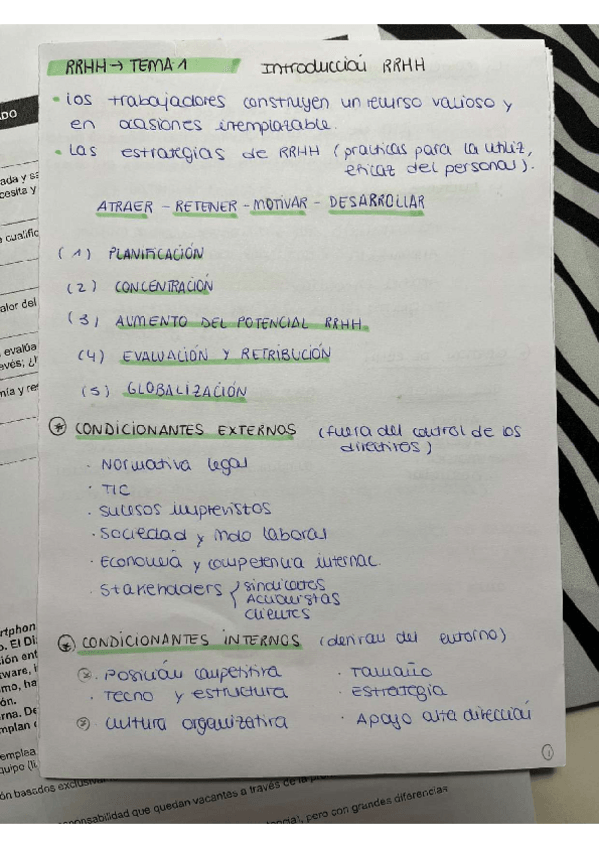 RRHH → TEMA 1 Introducción RRHH
• Los trabajadores construyen un recurso valioso y
en ocasiones irremplazable.
• Las estrategias de RRHH (prácticas para la utiliz,
eficaz del personal).
ATRAER - RETENER - MOTIVAR - DESARROLLAR
(1) PLANIFICACIÓN
(2) CONCENTRACIÓN
(3) AUMENTO DEL POTENCIAL RRHH.
(4) EVALUACIÓN Y RETRIBUCIÓN
(5) GLOBALIZACIÓN
* CONDICIONANTES EXTERNOS (fuera del control de los
directivos)
· Normativa legal
· TIC
· Sucesos imprevistos
· Sociedad y mdo laboral
· Economía y competencia internac.
· Stakeholders { Sindicatos
Accionistas
Clientes
* CONDICIONANTES INTERNOS (derivan del entorno)
· Posición competitiva · Tamaño
· Tecno y estructura · Estrategia
· Cultura organizativa · Apoyo alta dirección
1
ADO
ada y sa
cesita y
cualific
alor del
evalúa
evés; ¿l
nía y res
rtphon
o. El Di
ión ent
ware, i
mo, ha
ón.
rna. De
mplan
emplea
quipo (lí
ón basados exclusiv
sponsabilidad que quedan vacantes a través de la
pero con grandes diferencias